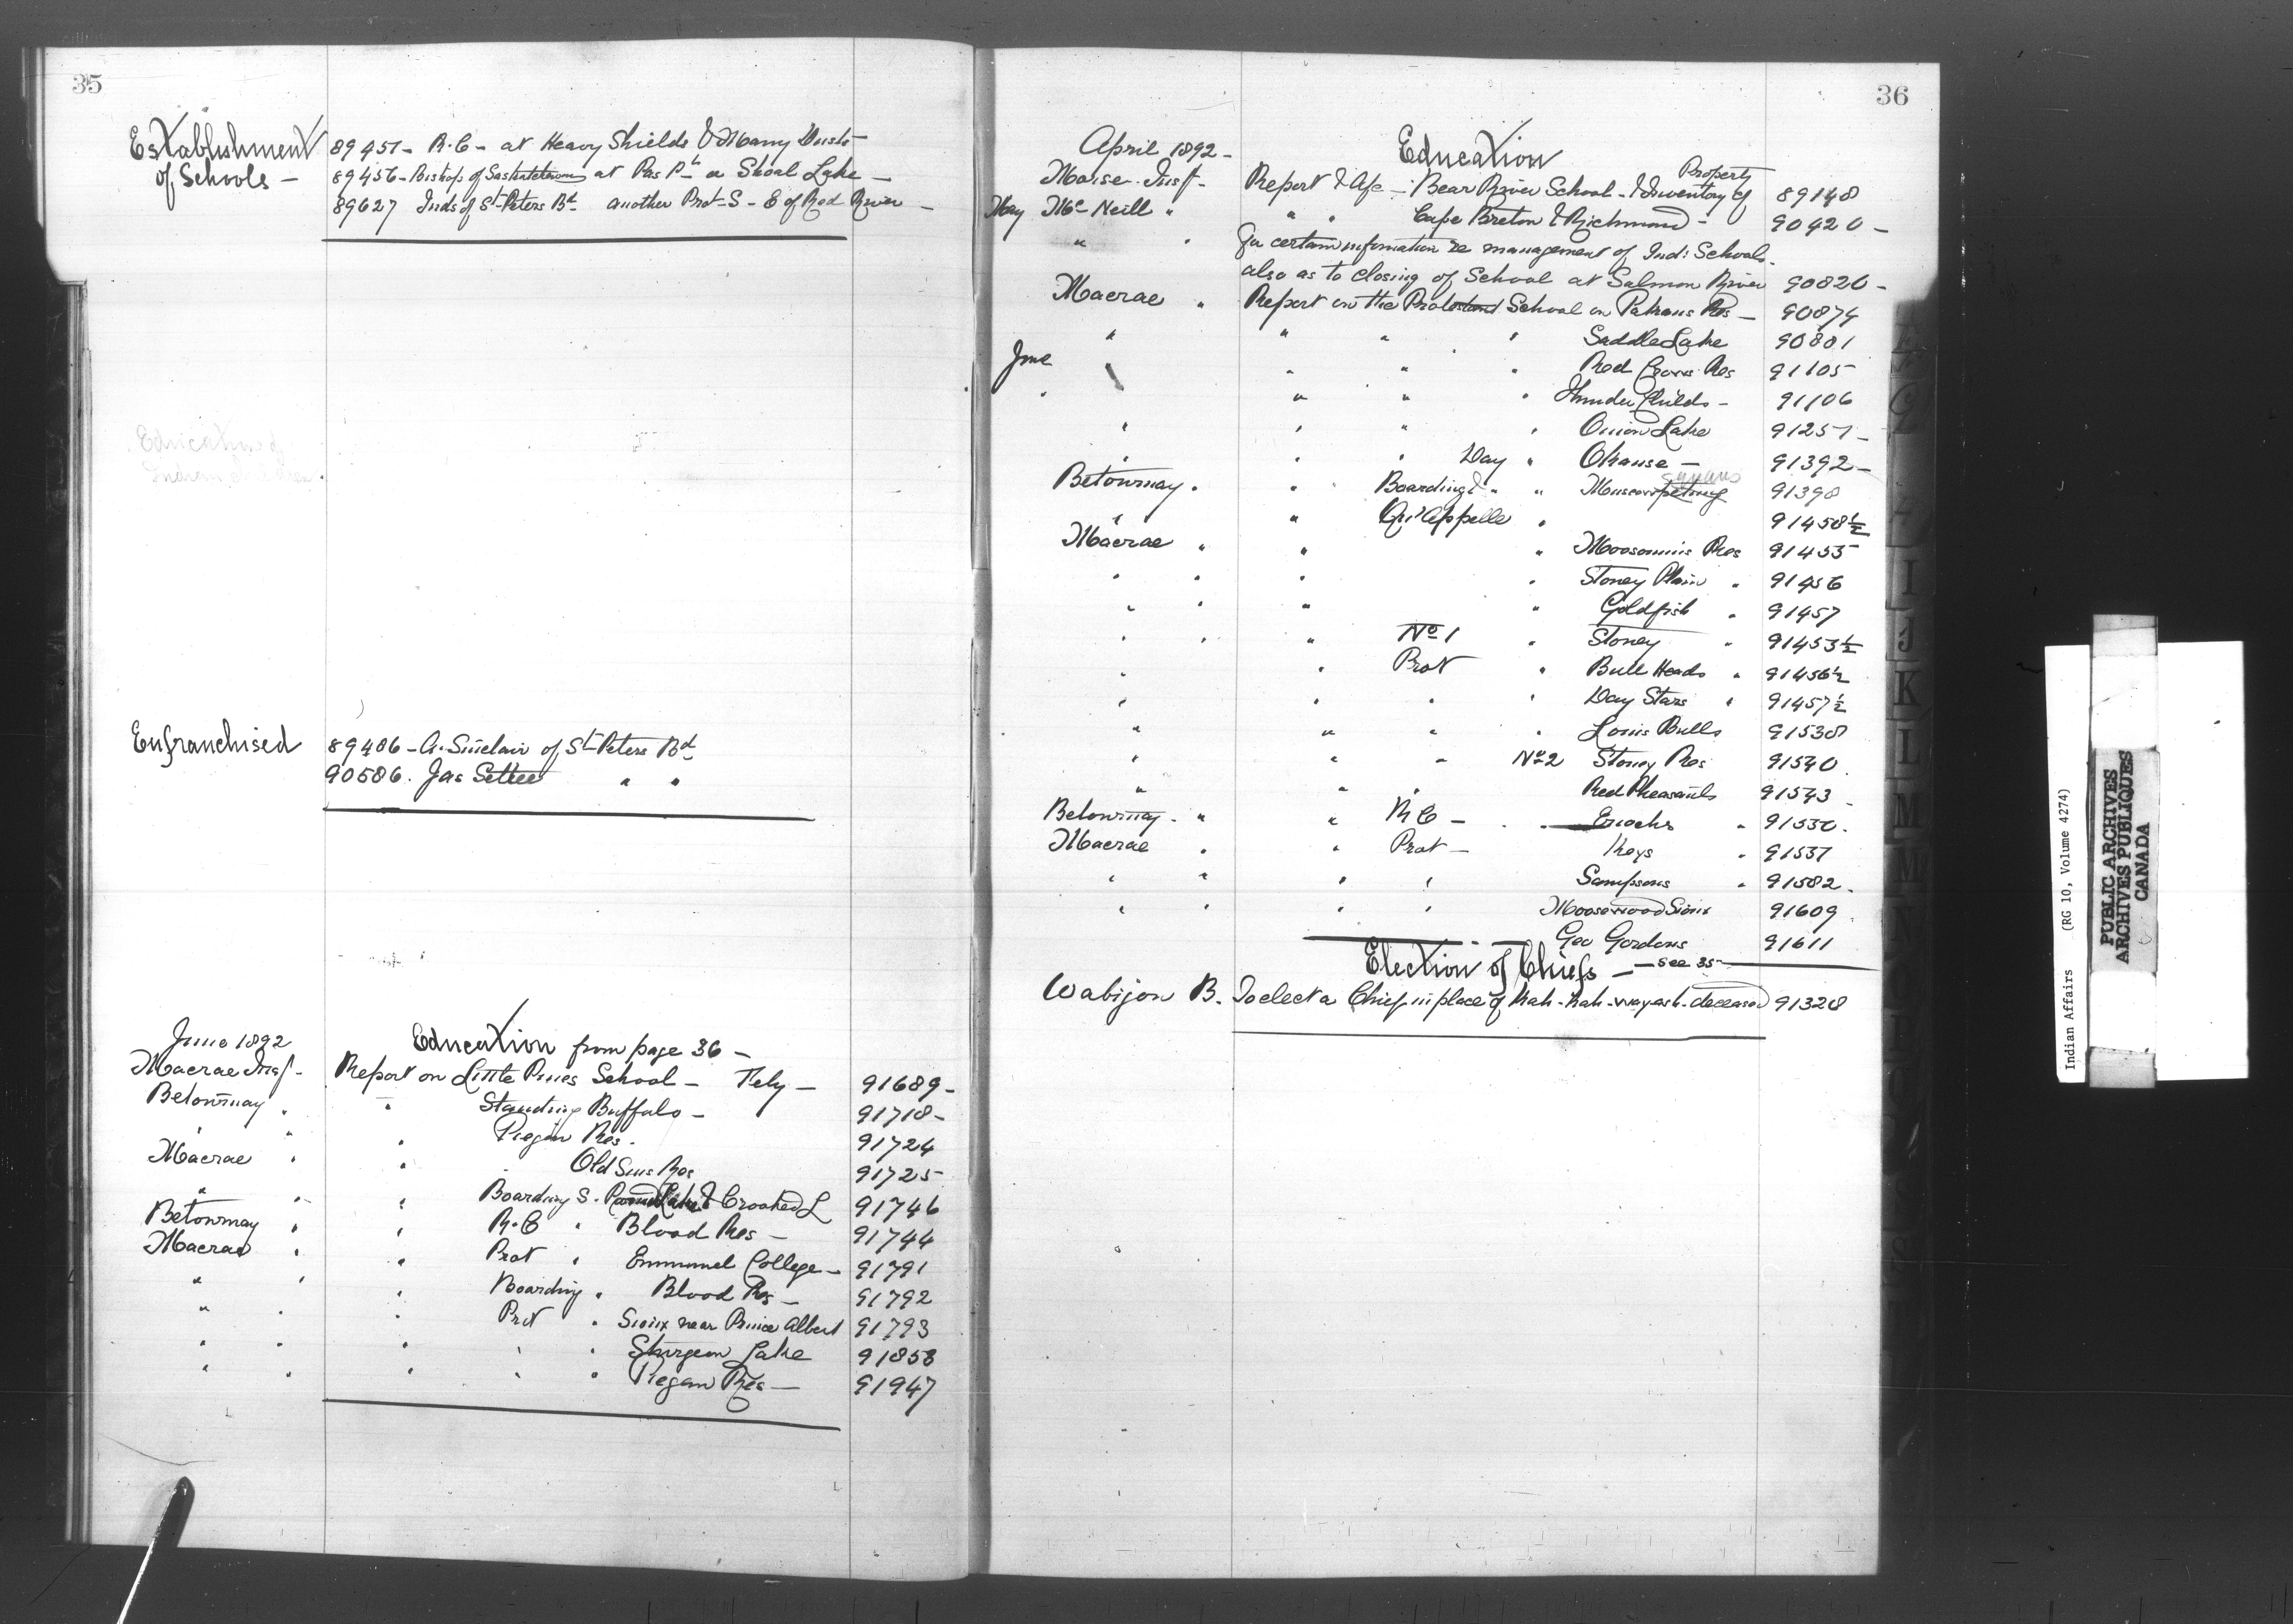 35
Establishment
of Schools –
89451 – R.C – at Heavy Shields & Many Dusts
89456 – Bishop of Saskatchewan at Pas Pt or Shoal Lake –
89627 Inds of St Peters Bd another Prot – S – E of Red River –
Education of
Indian children.
Enfranchised
89486 – A. Sinclair of St Peters Bd
90586. Jas Settee " "
June 1892
Education from page 36 –
Macrae Insp – Report on Little Pines School – Fely – 91689 –
Betournay " " Standing Buffalo – 91718 –
" " " Piegan Res. 91724
Macrae " " Old Suns Res 91725
" " " Boarding S. Round Lake & Crooked L 91746
Betournay " " R.C " Blood Res – 91744
Macrae " " Prot " Emmanuel College – 91791
" " " Boarding " Blood Res – 91792
" " " Prot " Sioux near Prince Albert 91793
" " " " " Sturgeon Lake 91858
" " " " " Piegan Res – 91947
36
April 1892 –
Education
Property
Morse. Insp – Report & A/c – Bear River School – & Inventory of 89148
May McNeill " " " Cape Breton & Richmond – 90420 –
" " For certain information re management of Ind: Schools.
also as to closing of School at Salmon River 90820 –
Macrae " Report on the Protestant School on Pakans Res – 90874
" " " " Saddle Lake 90881
June " " " " Red Crows Res 91105
" " " " Thunder Childs – 91106
" " " " Onion Lake 91251 –
" " " Day " Okanse – 91392 –
squaws
Betournay. " Boarding & " " Muscowpetung 91398
" " Qu'Appelle " 91458½
Macrae " " " Moosomins Res 91455
" " " " Stoney Plain " 91456
" " " " Goldfish " 91457
" " " No 1 " Stoney " 91453½
" " Prot " Bull Heads " 91456½
" " " " Day Stars " 91457½
" " " " Louis Bulls 91538
" " " No 2 Stoney Res 91540
" " " Red Pheasants 91543
Betournay. " " R C – " Enochs " 91530.
Macrae " " Prot – Keys " 91537
" " " " Sampsons " 91582.
" " " " Moosewood Sioux 91609
Geo Gordons 91611
Election of Chiefs –
– See 35 –
Wabigon B. To elect a Chief in place of Kah-kah-wayash – deceased 91328
Indian Affairs (RG 10, Volume 4274)
PUBLIC ARCHIVES
ARCHIVES PUBLIQUES
CANADA